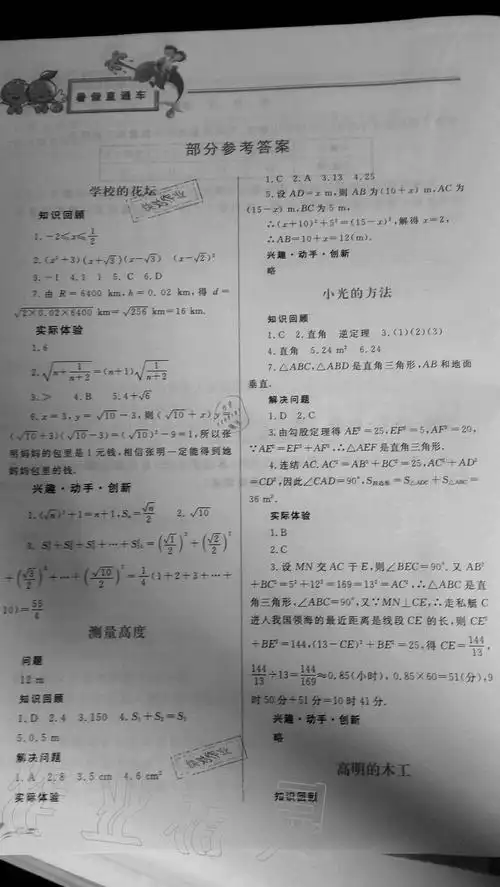 暑假直通车
部分参考答案
学校的花坛
知识回顾
1.-2≤x≤1/2
2.(x²+3)(x+√3)(x-√3) (x-√2)²
3.-1 4.1 1 5.C 6.D
7.由 R=6400 km,h=0.02 km,得 d=
√(2×0.02×6400) km=√256 km=16 km.
实际体验
1.6
2.√(n+1/(n+2))=(n+1)√(1/(n+2))
3.> 4.B 5.4+√6
6.x=3,y=√10-3,则(√10+x)y=
(√10+3)(√10-3)=(√10)²-9=1,所以张
明妈妈的包里是1元钱,相信张明一定能得到她
妈妈包里的钱.
兴趣·动手·创新
1.(√n)²+1=n+1,Sₙ=√n/2 2.√10
3.S₁²+S₂²+S₃²+…+S₁₀²=(√1/2)²+(√2/2)²
+(√3/2)²+…+(√10/2)²=1/4(1+2+3+…+
10)=55/4
测量高度
问题
12 m
知识回顾
1.D 2.4 3.150 4.S₁+S₂=S₃
5.0.5 m
解决问题
1.A 2.8 3.5 cm 4.6 cm²
实际体验
1.C 2.A 3.13 4.25
5.设 AD=x m,则 AB 为(10+x) m,AC 为
(15-x) m,BC 为 5 m,
∴(x+10)²+5²=(15-x)²,解得 x=2,
∴AB=10+x=12(m).
兴趣·动手·创新
略
小光的方法
知识回顾
1.C 2.直角 逆定理 3.(1)(2)(3)
4.直角 5.24 m² 6.24
7.△ABC,△ABD是直角三角形,AB和地面
垂直.
解决问题
1.D 2.C
3.由勾股定理得 AE²=25,EF²=5,AF²=20,
∵AE²=EF²+AF²,∴△AEF是直角三角形.
4.连结AC.AC²=AB²+BC²=25,AC²+AD²
=CD²,因此∠CAD=90°,S四边形=S△ADC+S△ABC=
36 m².
实际体验
1.B
2.C
3.设 MN 交 AC 于 E,则∠BEC=90°.又 AB²
+BC²=5²+12²=169=13²=AC²,∴△ABC 是直
角三角形,∠ABC=90°,又∵MN⊥CE,∴走私艇 C
进入我国领海的最近距离是线段 CE 的长,则 CE²
+BE²=144,(13-CE)²+BE²=25,得 CE=144/13,
144/13÷13=144/169≈0.85(小时),0.85×60=51(分),9
时50分+51分=10时41分.
兴趣·动手·创新
略
高明的木工
知识回顾